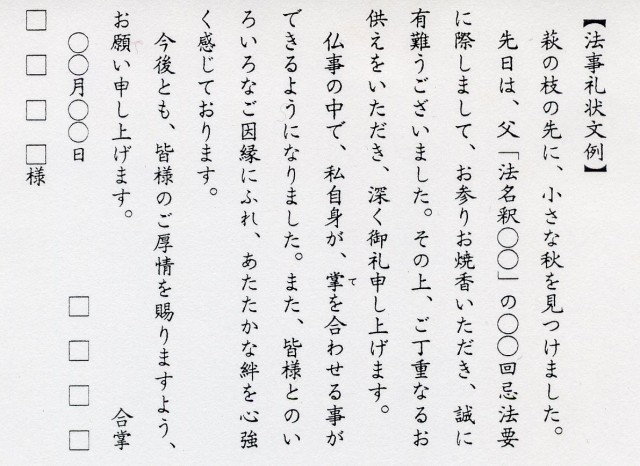 【法事礼状文例】
萩の枝の先に、小さな秋を見つけました。
先日は、父「法名釈〇〇」の〇〇回忌法要
に際しまして、お参りお焼香いただき、誠に
有難うございました。その上、ご丁重なるお
供えをいただき、深く御礼申し上げます。
仏事の中で、私自身が、掌を合わせる事が
て
できるようになりました。また、皆様とのい
ろいろなご因縁にふれ、あたたかな絆を心強
く感じております。
今後とも、皆様のご厚情を賜りますよう、
お願い申し上げます。
合掌
〇〇月〇〇日
□□□□
□□□□様